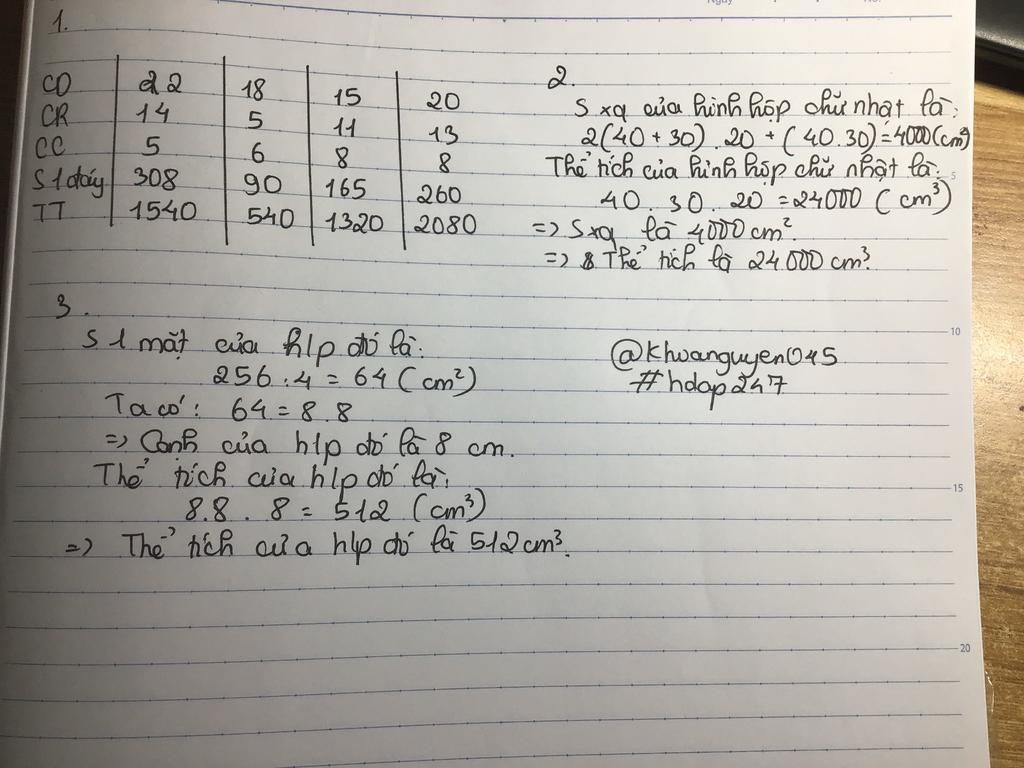 1.
CD 22 18 15 20
CR 14 5 11 13
CC 5 6 8 8
S1 đáy 308 90 165 260
TT 1540 540 1320 2080
2.
Sxq của hình hộp chữ nhật là:
2(40+30).20+(40.30)=4000(cm²)
Thể tích của hình hộp chữ nhật là:
40.30.20=24000(cm³)
=> Sxq là 4000cm².
=> Thể tích là 24000cm³.
3.
S 1 mặt của hlp đó là:
256:4=64(cm²)
Ta có: 64=8.8
=> Cạnh của hlp đó là 8 cm.
Thể tích của hlp đó là:
8.8.8=512(cm³)
=> Thể tích của hlp đó là 512cm³.
@khoanguyen045
#hdap247
5
10
15
20